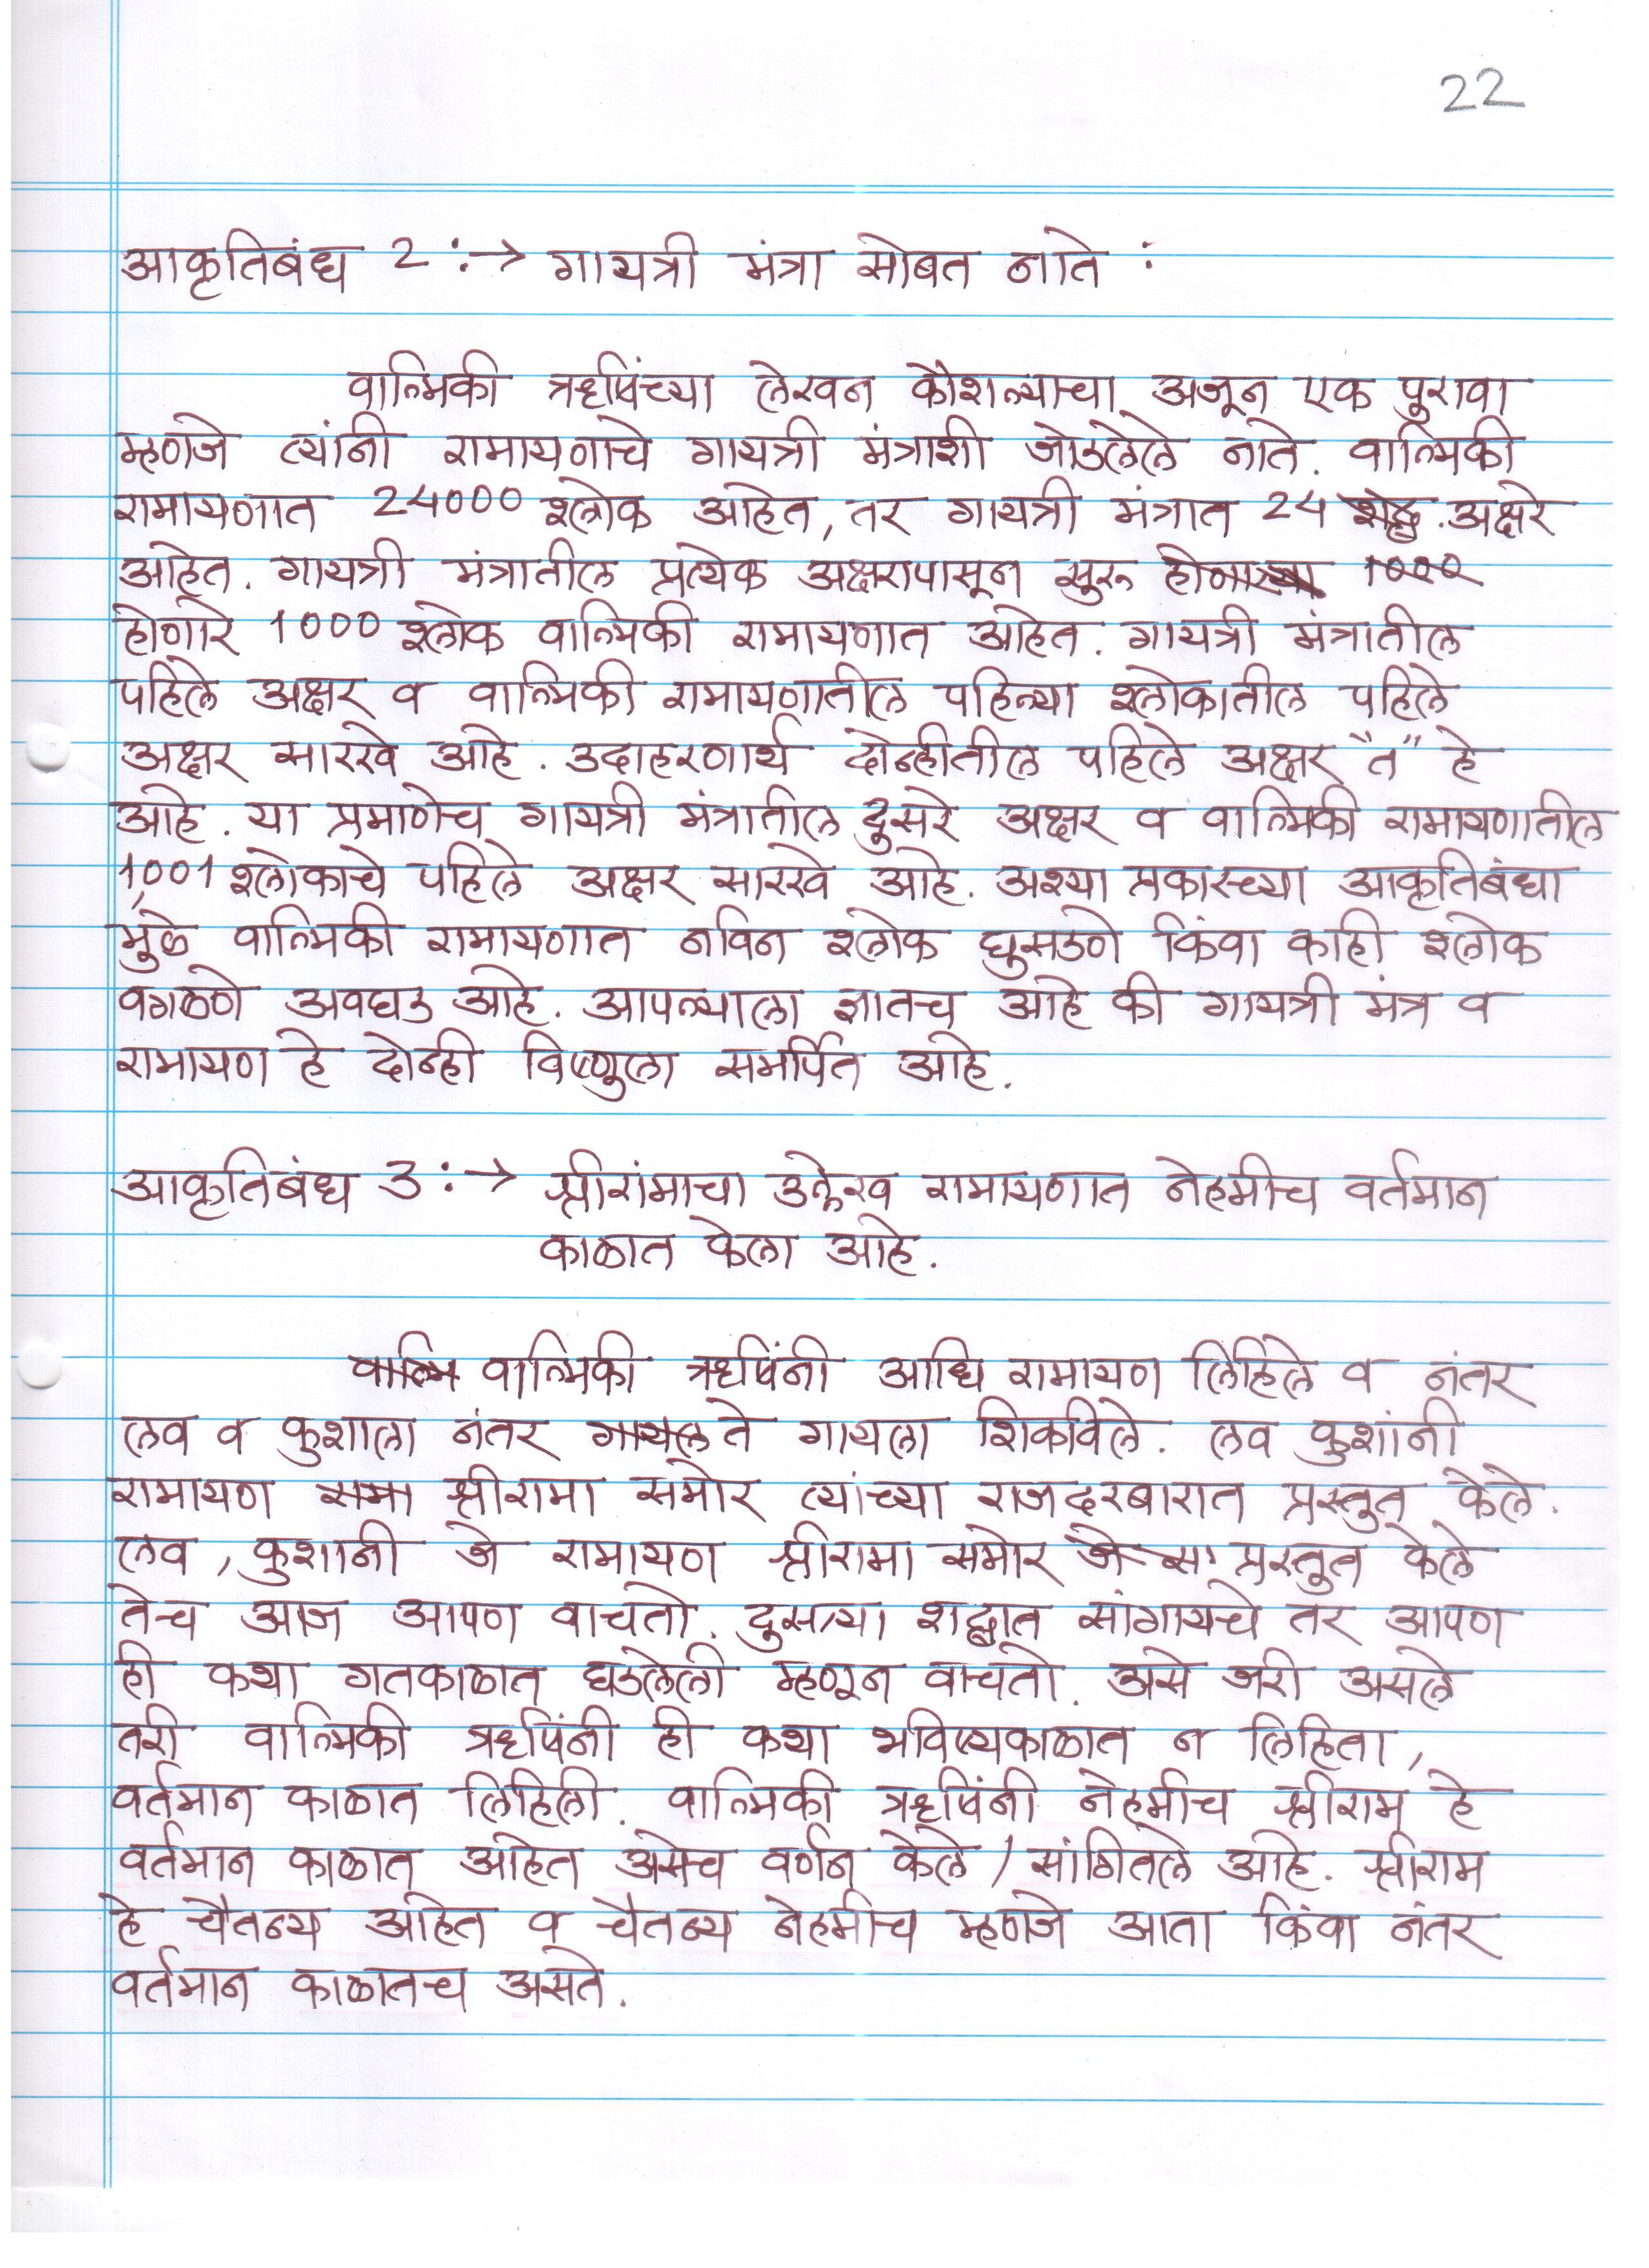 22
आकृतिबंध 2 :→ गायत्री मंत्रा सोबत नाते :
वाल्मिकी ऋषिंच्या लेखन कौशल्याचा अजून एक पुरावा
म्हणजे त्यांनी रामायणाचे गायत्री मंत्राशी जोडलेले नाते. वाल्मिकी
रामायणात 24000 श्लोक आहेत, तर गायत्री मंत्रात 24 अक्षरे
आहेत. गायत्री मंत्रातील प्रत्येक अक्षरापासून सुरु होणाऱ्या 1000
होणारे 1000 श्लोक वाल्मिकी रामायणात आहेत. गायत्री मंत्रातील
पहिले अक्षर व वाल्मिकी रामायणातील पहिल्या श्लोकातील पहिले
अक्षर सारखे आहे. उदाहरणार्थ दोन्हीतील पहिले अक्षर "त" हे
आहे. या प्रमाणेच गायत्री मंत्रातील दुसरे अक्षर व वाल्मिकी रामायणातील
1,001 श्लोकाचे पहिले अक्षर सारखे आहे. अश्या प्रकारच्या आकृतिबंधा
मुळे वाल्मिकी रामायणात नविन श्लोक घुसडणे किंवा काही श्लोक
वगळणे अवघड आहे. आपल्याला ज्ञातच आहे की गायत्री मंत्र व
रामायण हे दोन्ही विष्णुला समर्पित आहे.
आकृतिबंध 3 :→ श्रीरांमाचा उल्लेख रामायणात नेहमीच वर्तमान
काळात केला आहे.
वाल्मि वाल्मिकी ऋषिंनी आधि रामायण लिहिले व नंतर
लव व कुशाला नंतर गायल ते गायला शिकविले. लव कुशांनी
रामायण समा श्रीरामा समोर त्यांच्या राजदरबारात प्रस्तुत केले.
लव, कुशानी जे रामायण श्रीरामा समोर जे स प्रस्तुत केले
तेच आज आपण वाचतो. दुसऱ्या शब्दात सांगायचे तर आपण
ही कथा गतकाळात घडलेली म्हणून वाचतो. असे जरी असले
तरी वाल्मिकी ऋषिंनी ही कथा भविष्यकाळात न लिहिता,
वर्तमान काळात लिहिली. वाल्मिकी ऋषिंनी नेहमीच श्रीराम हे
वर्तमान काळात आहेत असेच वर्णन केले / सांगितले आहे. श्रीराम
हे चैतन्य आहेत व चैतन्य नेहमीच म्हणजे आता किंवा नंतर
वर्तमान काळातच असते.